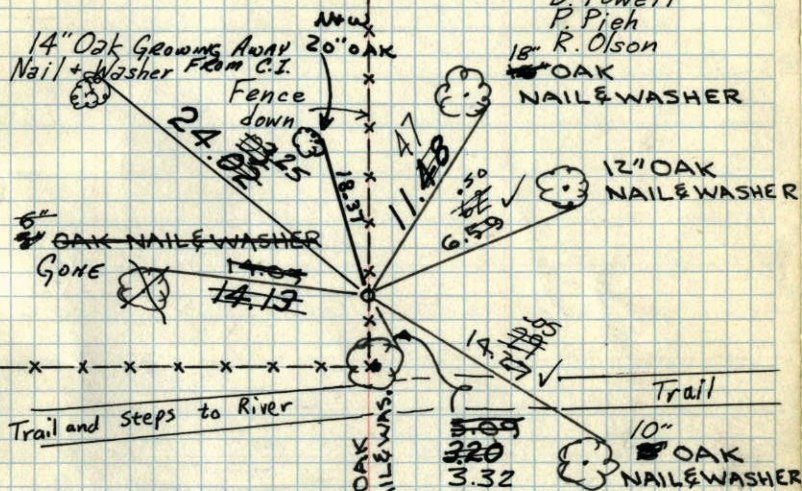 P. Pieh
R. Olson
N+W
14" Oak GROWING AWAY
FROM C.I.
Nail + Washer
20" OAK
Fence
down
18"
OAK
NAIL & WASHER
24.02
18.37
47
11.48
.50
6.59 ✓
12" OAK
NAIL & WASHER
6"
OAK NAIL & WASHER
GONE
14.09
14.13
.05
14.27 ✓
Trail
Trail and Steps to River
OAK
5.09
3.20
3.32
10"
OAK
NAIL & WASHER